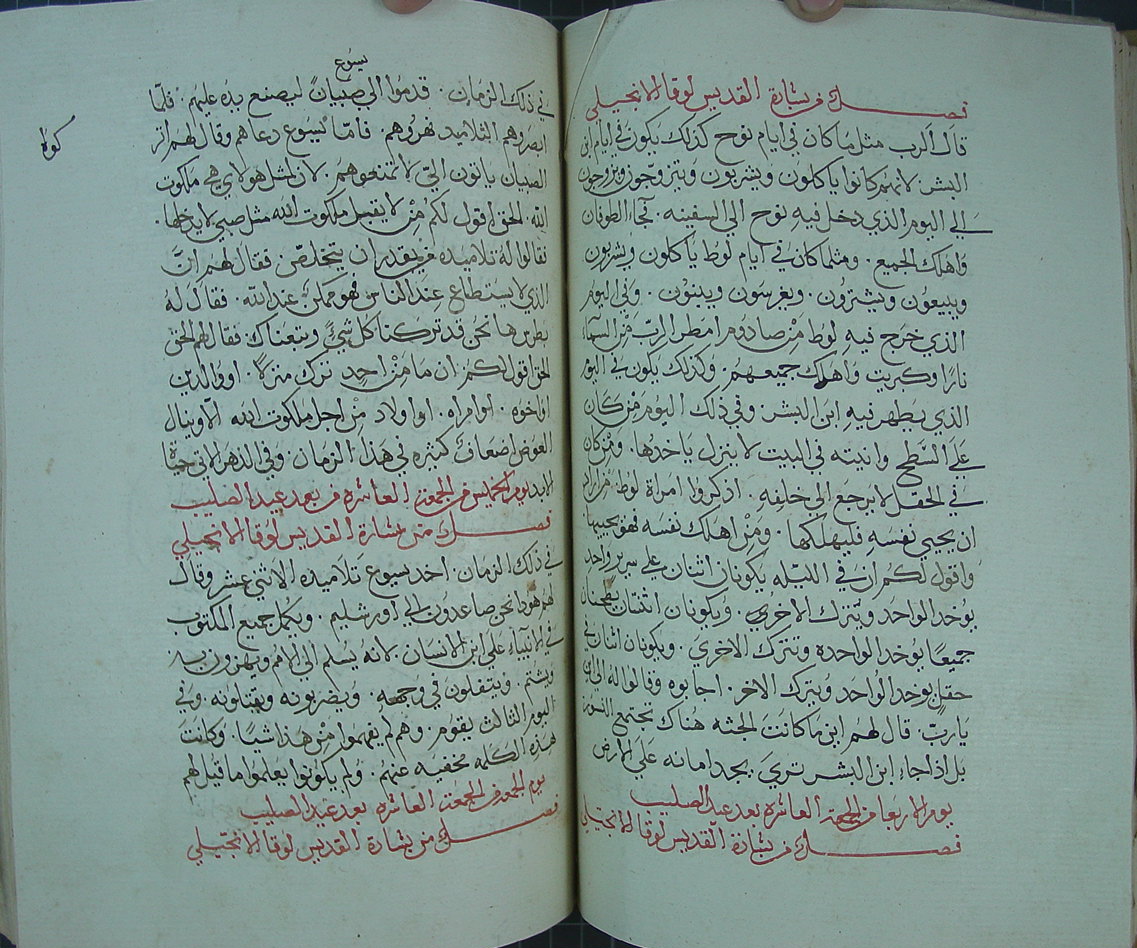 فصل من بشارة القديس لوقا الانجيلي
قال الرب مثل ما كان في ايام نوح كذلك يكون في ايام ابن
البشر. لانهم كانوا ياكلون ويشربون ويتزوجون ويزوجون
الي اليوم الذي دخل فيه نوح الي السفينه. فجاء الطوفان
واهلك الجميع. ومثلما كان في ايام لوط ياكلون ويشربون
ويبيعون ويشترون. ويغرسون ويبنون. وفي اليوم
الذي خرج فيه لوط من صادوم امطر الرب من السماء
نارا وكبريت واهلك جميعهم. وكذلك يكون في اليوم
الذي يظهر فيه ابن البشر. وفي ذلك اليوم من كان
علي السطح وانيته في البيت لا ينزل ياخدها. ومن كان
في الحقل لا يرجع الي خلفه. اذكروا امراة لوط. من اراد
ان يحيي نفسه فليهلكها. ومن اهلك نفسه فهو يحييها
واقول لكم ان في الليله يكونان اتنان علي سرير واحد
يوخد الواحد ويترك الاخري. ويكونان اثنتان يطحنان
جميعا يوخد الواحده وتترك الاخري. ويكونان اثنان في
حقل يوخد الواحد ويترك الاخر. اجابوه وقالوا له الي اين
يا رب. قال لهم اين ما كانت الجثه هناك تجتمع النسور
بل اذا جاء ابن البشر تري يجد امانه علي الارض
يوم الاربعا من الجمعة العاشره بعد عيد الصليب
فصل من بشارة القديس لوقا الانجيلي
يسوع
في ذلك الزمان. قدموا الي صبيان ليصنع يده عليهم. فلما
ابصروهم التلاميد نهروهم. فاما يسوع دعاهم وقال لهم
الصبيان ياتون الي لا تمنعوهم. لان لمثل هولاي هي ملكوت
الله. الحق اقول لكم من لا يقبل ملكوت الله مثل صبي لا يدخلها.
فقالوا له تلاميده فمن يقدر ان يتخلص. فقال لهم ان
الذي لا يستطاع عند الناس فهو ممكن عند الله. فقال له
بطرس ها نحن قد تركنا كل شي وتبعناك. فقال لهم الحق
الحق اقول لكم ان ما من احد ترك منزلا. او والدين
او اخوه. او امراه. او اولاد من اجل ملكوت الله الا وينال
العوض اضعاف كثيره في هذا الزمان. وفي الدهر الاتي حياة
الابد يوم الخميس من الجمعة العاشره من بعد عيد الصليب
فصل من بشارة القديس لوقا الانجيلي
في ذلك الزمان. اخد يسوع تلاميده الاثني عشر وقال
لهم هودا نحن صاعدون الي اورشليم. ويكمل جميع المكتوب
في الانبياء علي ابن الانسان. لانه يسلم الي الامم ويهزون به
ويشتم. ويتفلون في وجهه. ويضربونه ويقتلونه. وفي
اليوم الثالث يقوم. وهم لم يفهموا من هذا شيا. وكانت
هذه الكلمه مخفيه عنهم. ولم يكونوا يعلموا ما قيل لهم
يوم الجمعة من الجمعة العاشره بعد عيد الصليب
فصل من بشارة القديس لوقا الانجيلي